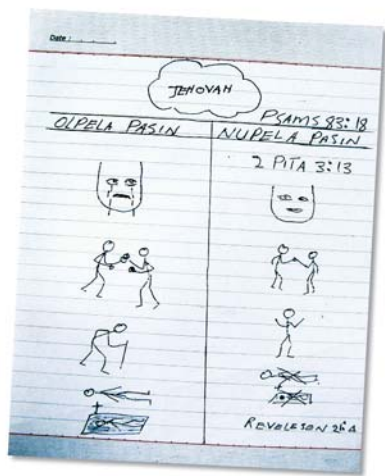 Date :
JEHOVAH
PSAMS 83:18
OLPELA PASIN
NUPELA PASIN
2 PITA 3:13